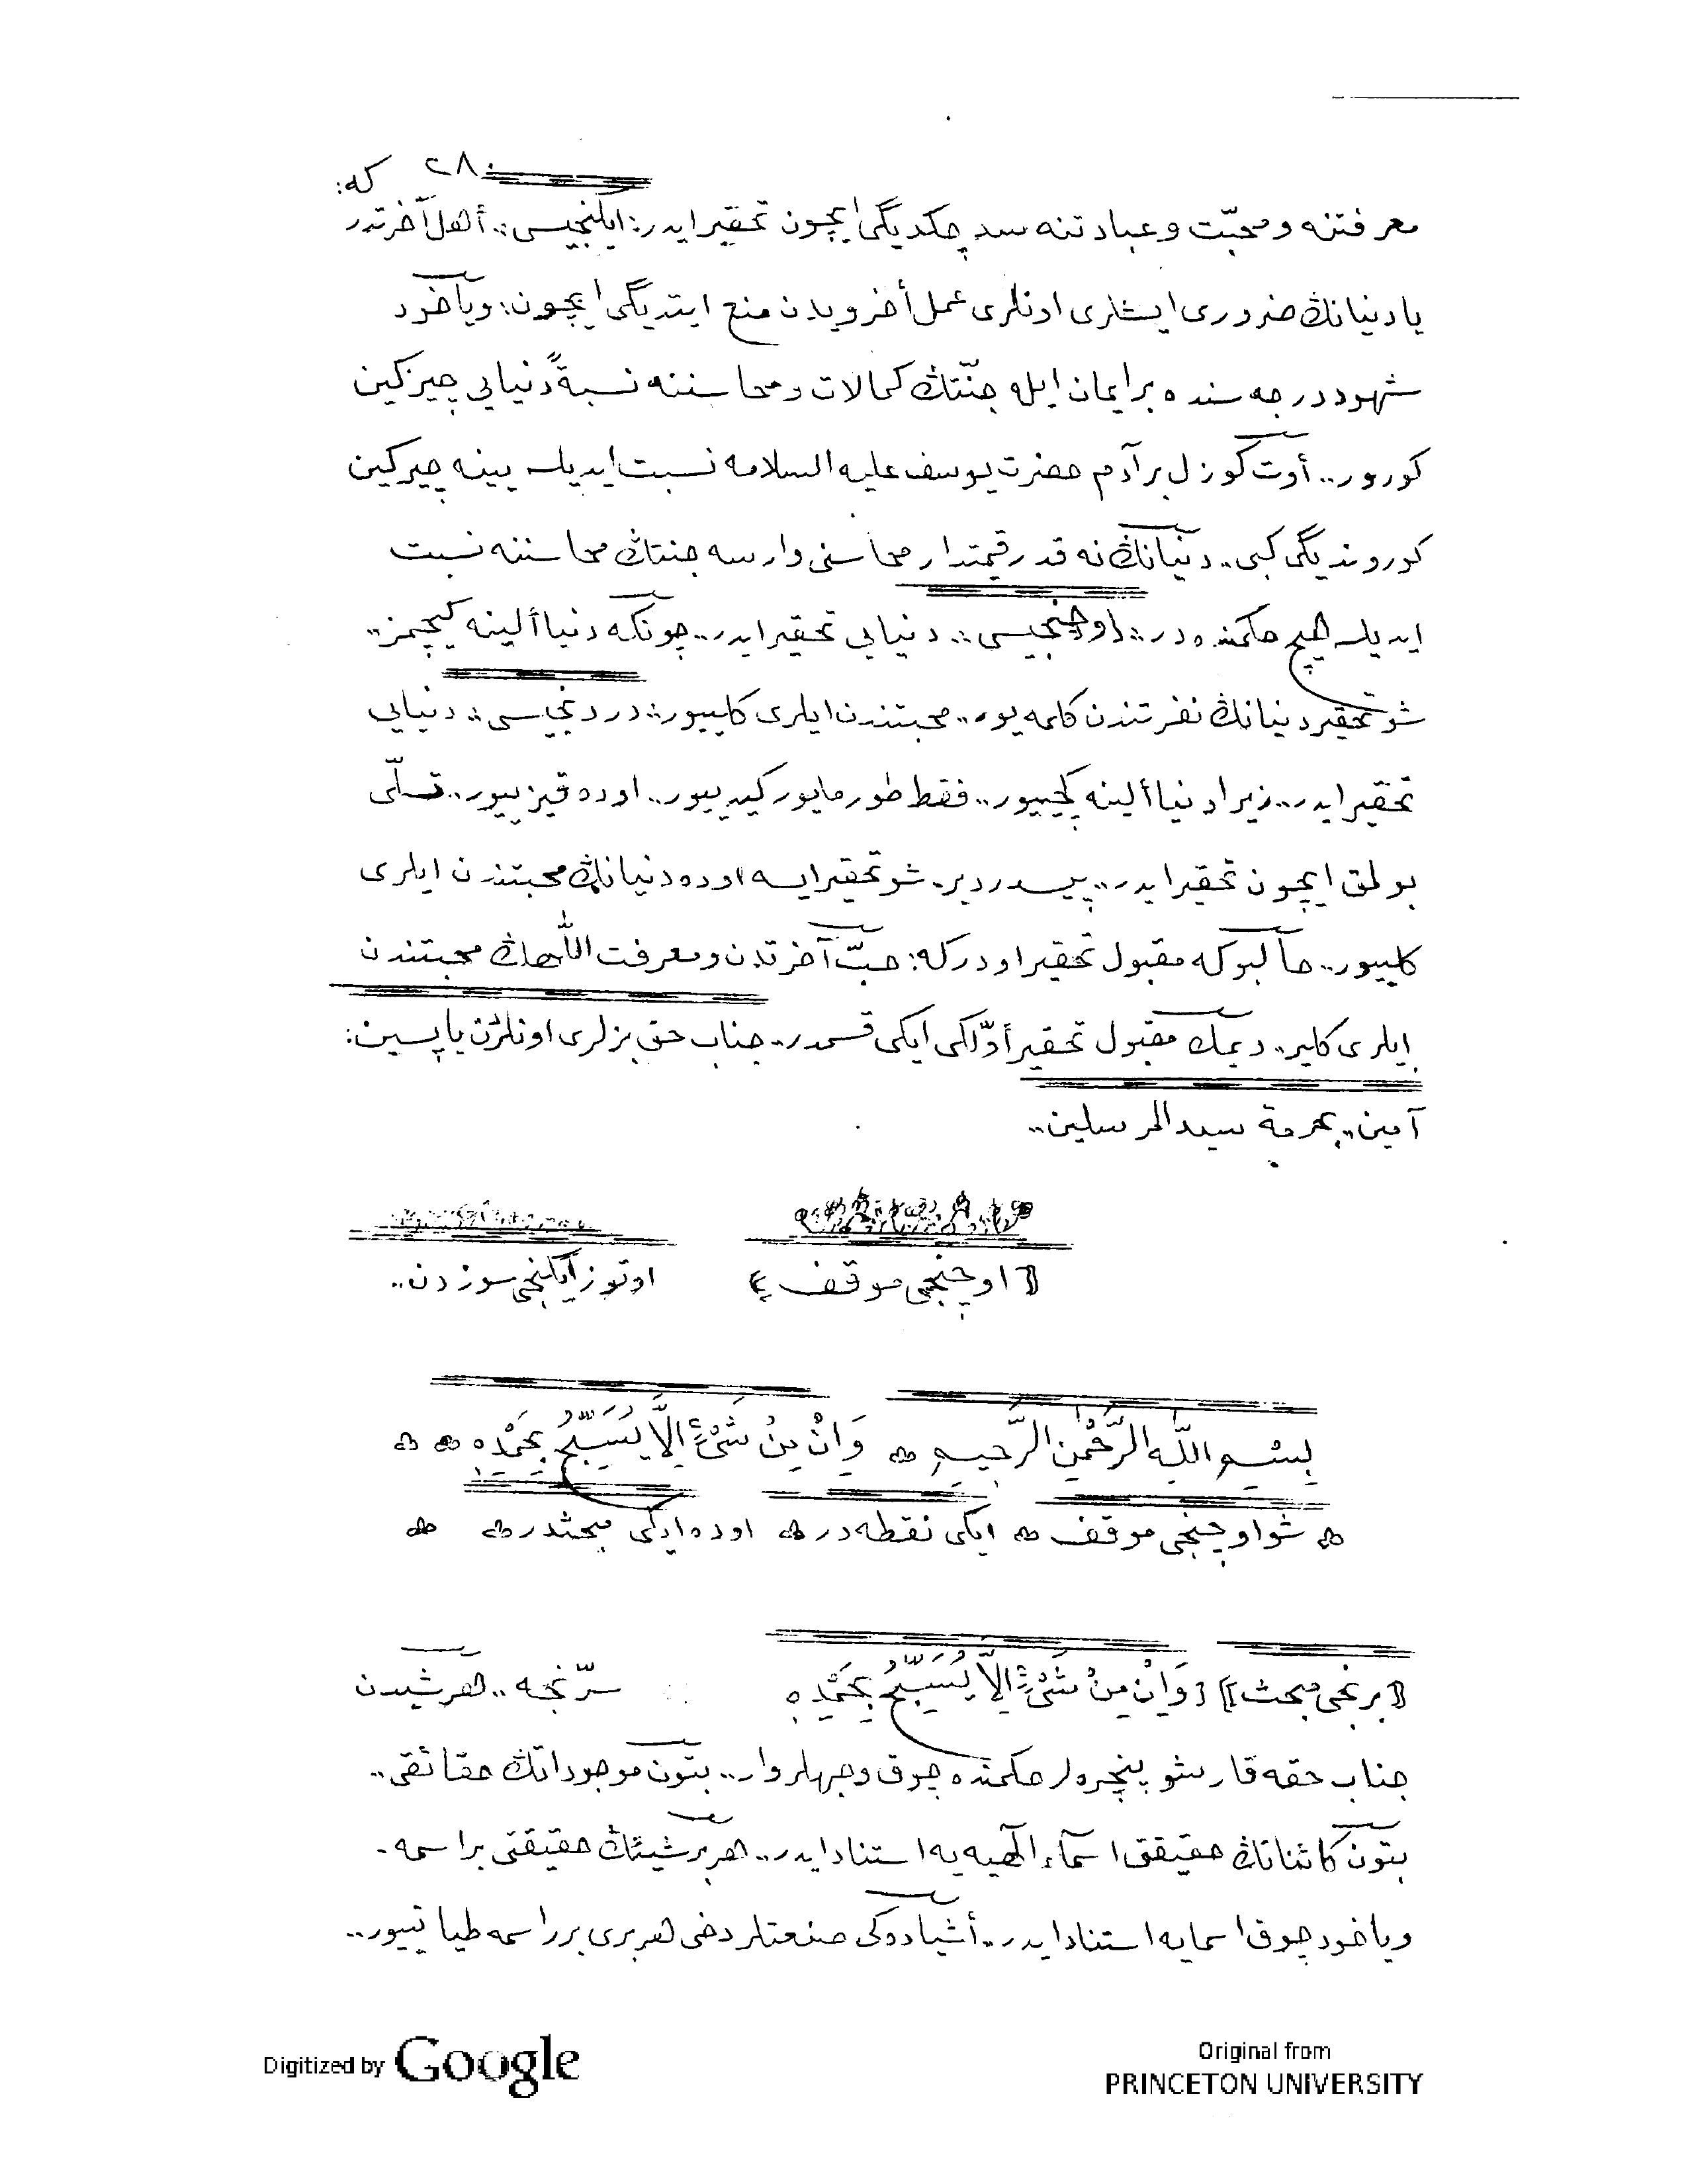 ٢٨
معرفتنه ومحبّت وعبادتنه سد چكديگى ايچون تحقير ايدر: ايكنجيسى:. أهل آخرتدر كه:
يا دنيانڭ ضرورى ايشلرى اونلرى عمل أخرويدن منع ايتديگى ايچون: وياخود
شهود درجه سنده بر ايمان ايله جنّتڭ كمالات و محاسننه نسبةً دنيايى چيركين
كورور.. أوت كوزل بر آدم حضرت يوسف عليه السلامه نسبت ايديلسه يينه چيركين
كوروندیگى كبى.. دنيانڭ نه قدر قيمتدار محاسنى وارسه جنتڭ محاسننه نسبت
ايديلسه هيچ حكمنده در:: اوچنجيسى:: دنيايى تحقير ايدر.. چونكه دنيا ألينه كيچمز..
شو تحقير دنيانڭ نفرتندن كلمه يور.. محبتندن ايلرى كلييور:: دردنجيسى:: دنيايى
تحقير ايدر.. زيرا دنيا ألينه كچييور.. فقط طورمايور كيدييور.. اوده قيزييور.. تسلّى
بولمق ايچون تحقير ايدر.. پيسدر دير. شو تحقير ايسه اوده دنيانڭ محبتندن ايلرى
كلييور.. حالبوكه مقبول تحقير اودركه: حبّ آخرتدن ومعرفت اللّٰهڭ محبتندن
ايلرى كلير.. ديمك مقبول تحقير أوّلكى ايكى قسمدر.. جناب حق بزلرى اونلردن ياپسين:
آمين.. بحرمة سيد المرسلين..
﴿اوچنجى موقف﴾ اوتوز ايكنجى سوزدن..
بِسْمِ اللّٰهِ الرَّحْمٰنِ الرَّحِيمِ ۞ وَاِنْ مِنْ شَىْءٍ اِلَّا يُسَبِّحُ بِحَمْدِهِ ۞ ۞
۞ شو اوچنجى موقف ۞ ايكى نقطه در ۞ اوده ايكى مبحثدر ۞ ۞
﴿برنجى مبحث﴾ ﴿وَاِنْ مِنْ شَىْءٍ اِلَّا يُسَبِّحُ بِحَمْدِهِ سرّنجه.. هر شيدن
جناب حقه قارشو پنچره لر حكمنده چوق وجهلر وار.. بتون موجوداتڭ حقائقى..
بتون كائناتڭ حقيقتى اسمآء الٓهيه يه استناد ايدر.. هر بر شيئڭ حقيقتى بر اسمه.
وياخود چوق اسمايه استناد ايدر.. أشياده كى صنعتلر دخى هر برى برر اسمه طيانييور..
Digitized by Google
Original from
PRINCETON UNIVERSITY